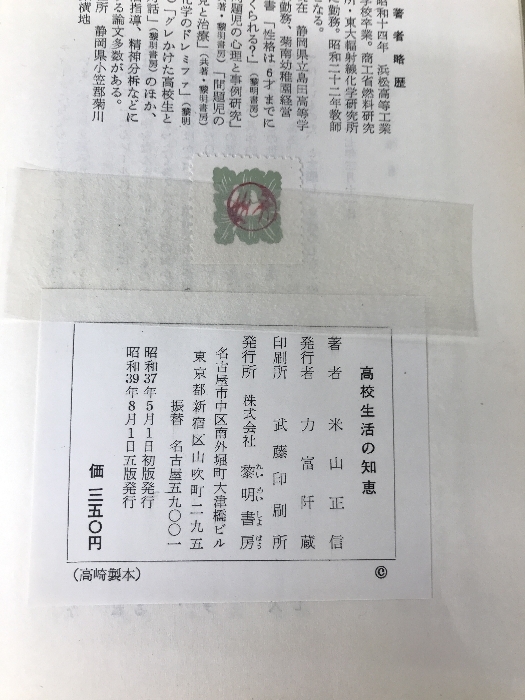 著者略歴
昭和十四年 浜松高等工業
学校卒業。商工省燃料研究
所・東大輻射線化学研究所
に勤務。昭和二十二年教師
となる。
現在 静岡県立島田高等学
勤務、菊南幼稚園経営
書「性格は6才までに
くられる？」(黎明書房)
題児の心理と事例研究」
(黎明書房)「問題児の
見と治療」(共著・黎明書房)
化学のドレミファ」(黎明
)「グレかけた高校生と
話」(黎明書房)のほか、
る論文多数がある。
指導、精神分析などに
所 静岡県小笠郡菊川
高校生活の知恵
著者 米山正信
発行者 力富阡蔵
印刷所 武藤印刷所
発行所 株式会社 黎明書房
れいめいしょぼう
名古屋市中区南外堀町大津橋ビル
東京都新宿区山吹町二九五
振替 名古屋五九〇〇一
昭和37年5月1日初版発行
昭和39年8月1日五版発行
価 三五〇円
(高崎製本)
©